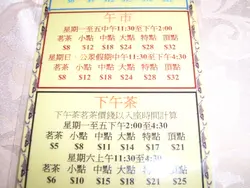 午市
星期一至五中午11:30至下午2:00
茗茶 小點 中點 大點 特點 頂點
$8 $12 $18 $24 $28 $32
星期日、公眾假期中午11:30至
茗茶 小點 中點 大點 特點 頂點
$8 $12 $18 $24 $28 $32
下午茶
下午茶茗茶價錢以入座時間計算
星期一至五下午2:00至4:30
茗茶 小點 中點 大點 特點 頂點
$5 $8 $11 $14 $17 $21
星期六上午11:30至4:30
茗茶 小點 中點 大點 特點 頂點
$6 $10 $15 $18 $21 $25